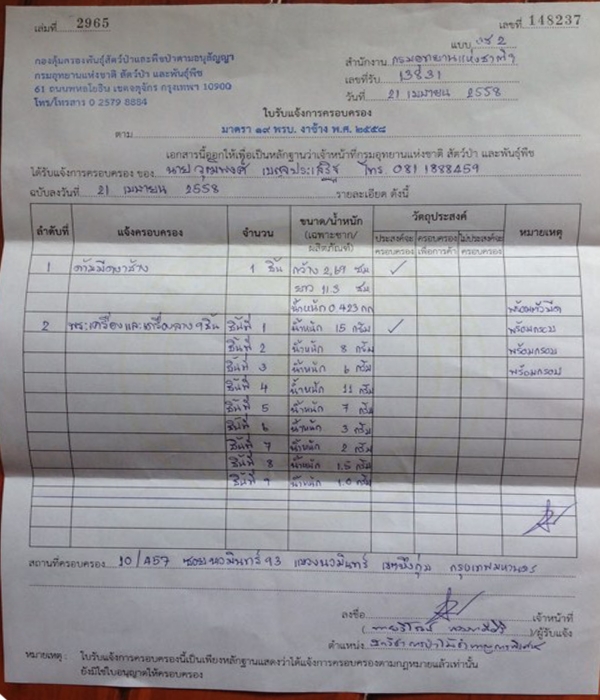 เล่มที่ 2965
เลขที่ 148237
แบบ งช 2
กองคุ้มครองพันธุ์สัตว์ป่าและพืชป่าตามอนุสัญญา
สำนักงาน กรมอุทยานแห่งชาติฯ
กรมอุทยานแห่งชาติ สัตว์ป่า และพันธุ์พืช
เลขที่รับ 13831
61 ถนนพหลโยธิน เขตจตุจักร กรุงเทพฯ 10900
วันที่ 21 เมษายน 2558
โทร/โทรสาร 0 2579 8884
ใบรับแจ้งการครอบครอง
ตาม มาตรา ๑๙ พรบ. งาช้าง พ.ศ. ๒๕๕๘
เอกสารนี้ออกให้เพื่อเป็นหลักฐานว่าเจ้าหน้าที่กรมอุทยานแห่งชาติ สัตว์ป่า และพันธุ์พืช
ได้รับแจ้งการครอบครอง ของ นาย โทร. 081 1888459
ฉบับลงวันที่ 21 เมษายน 2558 รายละเอียด ดังนี้
ลำดับที่ แจ้งครอบครอง จำนวน ขนาด/น้ำหนัก (เฉพาะซาก/ผลิตภัณฑ์) วัตถุประสงค์ หมายเหตุ
ประสงค์จะครอบครอง ครอบครองเพื่อการค้า ไม่ประสงค์จะครอบครอง
1 ด้ามมีดงาช้าง 1 ชิ้น กว้าง 2,69 ซม ✓
ยาว 11.3 ซม
น้ำหนัก 0.423 กก พร้อมตัวมีด
2 พระเครื่องและเครื่องราง 9 ชิ้น ชิ้นที่ 1 น้ำหนัก 15 กรัม ✓ พร้อมกรอบ
ชิ้นที่ 2 น้ำหนัก 8 กรัม พร้อมกรอบ
ชิ้นที่ 3 น้ำหนัก 6 กรัม พร้อมกรอบ
ชิ้นที่ 4 น้ำหนัก 11 กรัม
ชิ้นที่ 5 น้ำหนัก 7 กรัม
ชิ้นที่ 6 น้ำหนัก 3 กรัม
ชิ้นที่ 7 น้ำหนัก 2 กรัม
ชิ้นที่ 8 น้ำหนัก 1.5 กรัม
ชิ้นที่ 9 น้ำหนัก 1.0 กรัม
สถานที่ครอบครอง 10/457 ซอยนวมินทร์ 93 แขวงนวมินทร์ เขตบึงกุ่ม กรุงเทพมหานคร
ลงชื่อ เจ้าหน้าที่
( )ผู้รับแจ้ง
ตำแหน่ง
หมายเหตุ : ใบรับแจ้งการครอบครองนี้เป็นเพียงหลักฐานแสดงว่าได้แจ้งการครอบครองตามกฎหมายแล้วเท่านั้น
ยังมิใช่ใบอนุญาตให้ครอบครอง